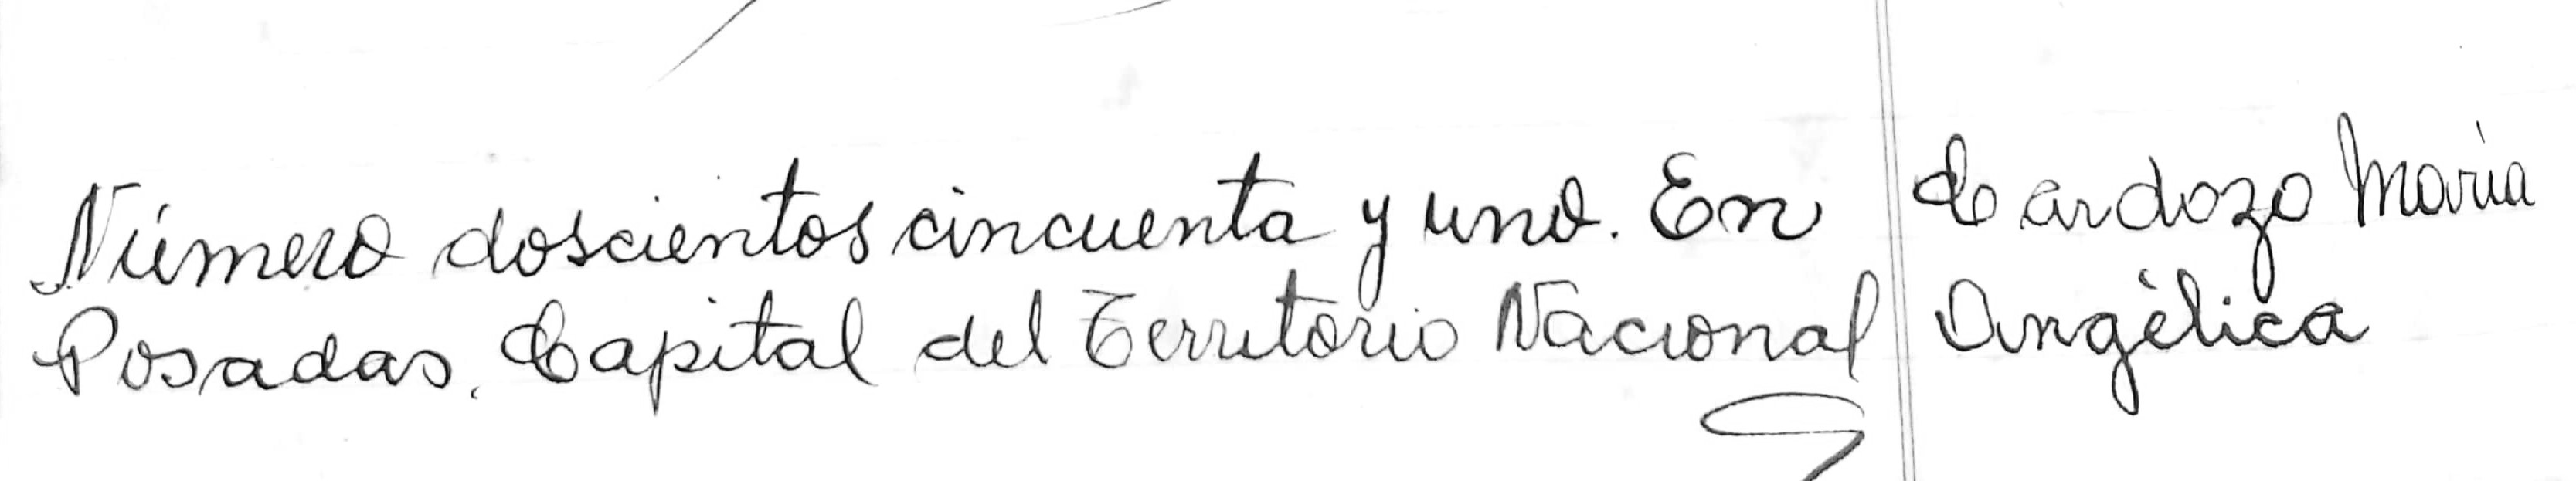 Número doscientos cincuenta y uno. En
Posadas, Capital del Territorio Nacional
Cardozo María
Angélica